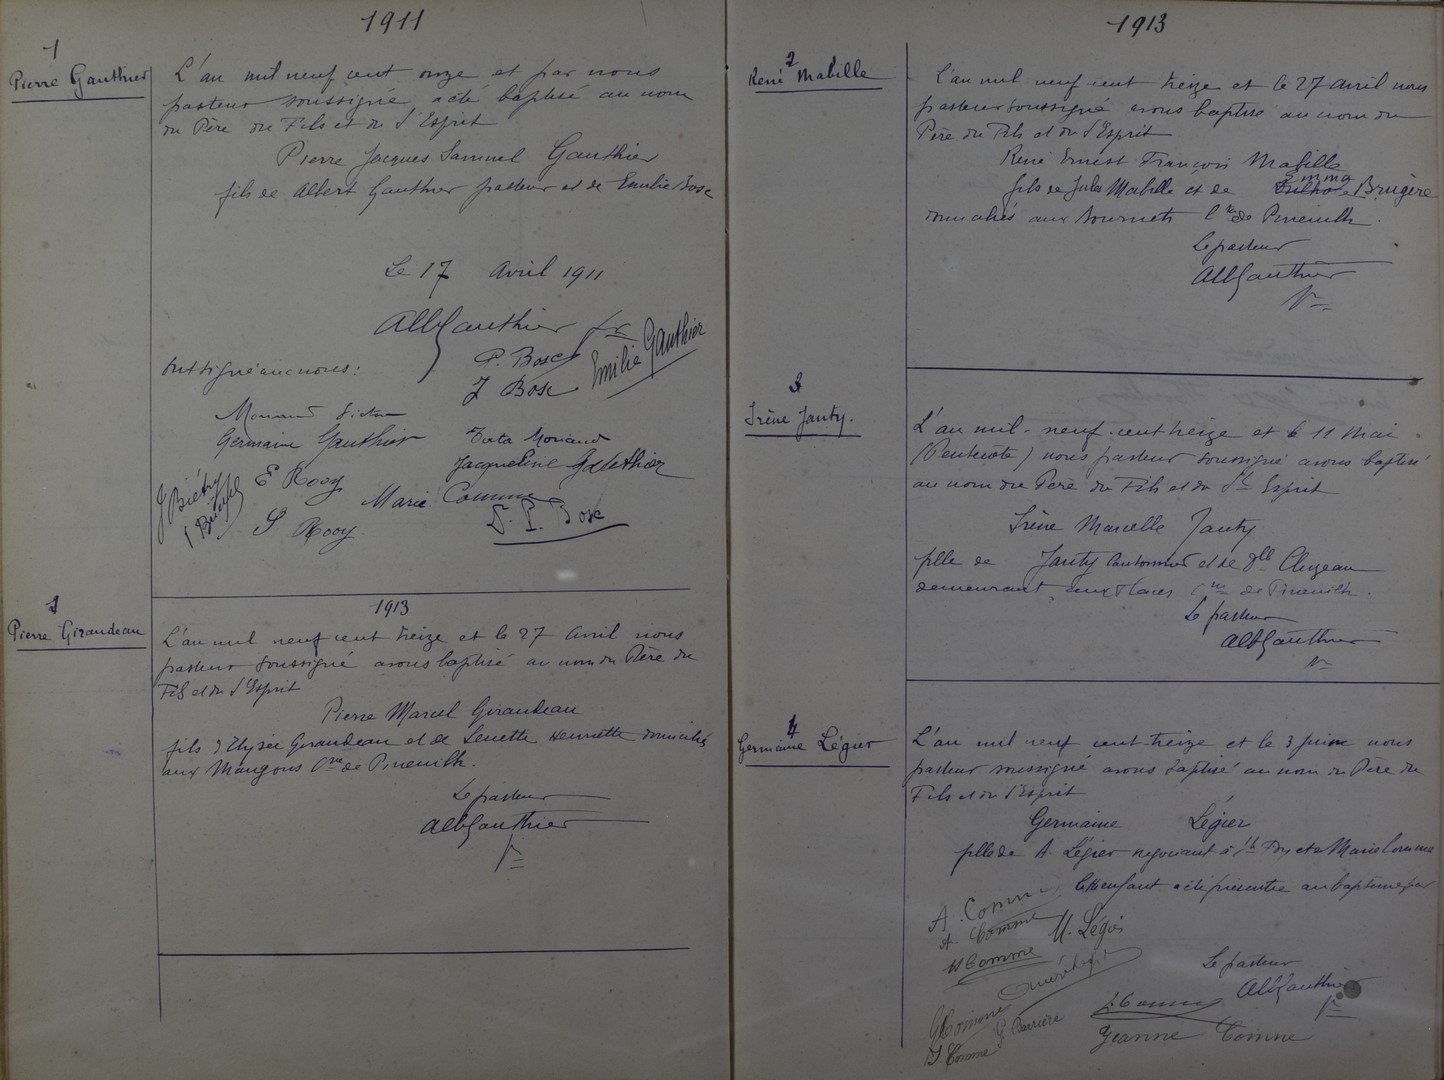 1911
1
Pierre Gauthier
L'an mil neuf cent onze et par nous
pasteur soussigné, a été baptisé au nom
du Père du Fils et du S'Esprit
Pierre Jacques Samuel Gauthier
fils de Albert Gauthier pasteur et de Emilie Bosc
Le 17 Avril 1911
AlbGauthier
ont signé avec nous :
P. Bosc
J Bosc
Emilie Gauthier
Germaine Gauthier
Morand
Jacqueline Gauthier
E Rooy
Marie Comme
S Rooy
P. Bosc
1913
1
Pierre Giraudeau
L'an mil neuf cent treize et le 27 Avril nous
pasteur soussigné avons baptisé au nom du Père du
Fils et du S'Esprit
Pierre Marcel Giraudeau
fils d'Elysée Giraudeau et de Henriette domiciliés
aux Mangons Cne de Pineuilh.
Le pasteur
AlbGauthier
1913
2
René Mabille
L'an mil neuf cent treize et le 27 Avril nous
pasteur soussigné avons baptisé au nom du
Père du Fils et du S'Esprit
René Ernest François Mabille
fils de Jules Mabille et de Emma Brugère
domiciliés aux Cne de Pineuilh.
Le pasteur
AlbGauthier
3
Irène Jauty.
L'an mil-neuf-cent treize et le 11 Mai
(Pentecôte) nous pasteur soussigné avons baptisé
au nom du Père du Fils et du St Esprit
Irène Marcelle Jauty
fille de Jauty cantonnier et de Dlle Cluzeau
demeurant aux Cne de Pineuilh.
Le pasteur
AlbGauthier
4
Germaine Légier
L'an mil neuf cent-treize et le 3 juin nous
pasteur soussigné avons baptisé au nom du Père du
Fils et du S'Esprit
Germaine Légier
fille de A. Légier negociant à Ste Foy et de Marie Comme
enfant a été présentée au baptême par
A. Comme
A. Comme
M. Légier
M Comme
Le pasteur
AlbGauthier
G Comme
G Barrière
J Comme
Jeanne Comme